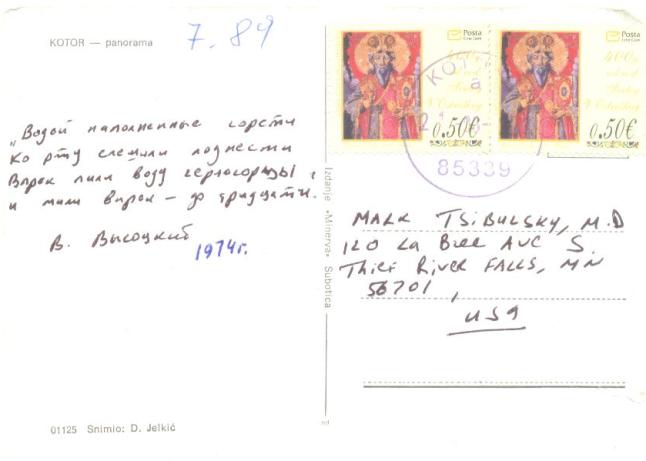 KOTOR — panorama
7.89
Posta
400
0.50€
Posta
400
0.50€
KOT
85339
„Водой наполненные горсти
Ко рту спешили поднести
Впрок пили воду черногорцы,
и жили впрок — до тридцати.
В. Высоцкий
1974г.
Izdanje «Minerva» Subotica
MARK TSIBULSKY, M.D
120 La Bree AVE S.
Thief River FALLS, MN
56701,
USA
01125 Snimio: D. Jelkić